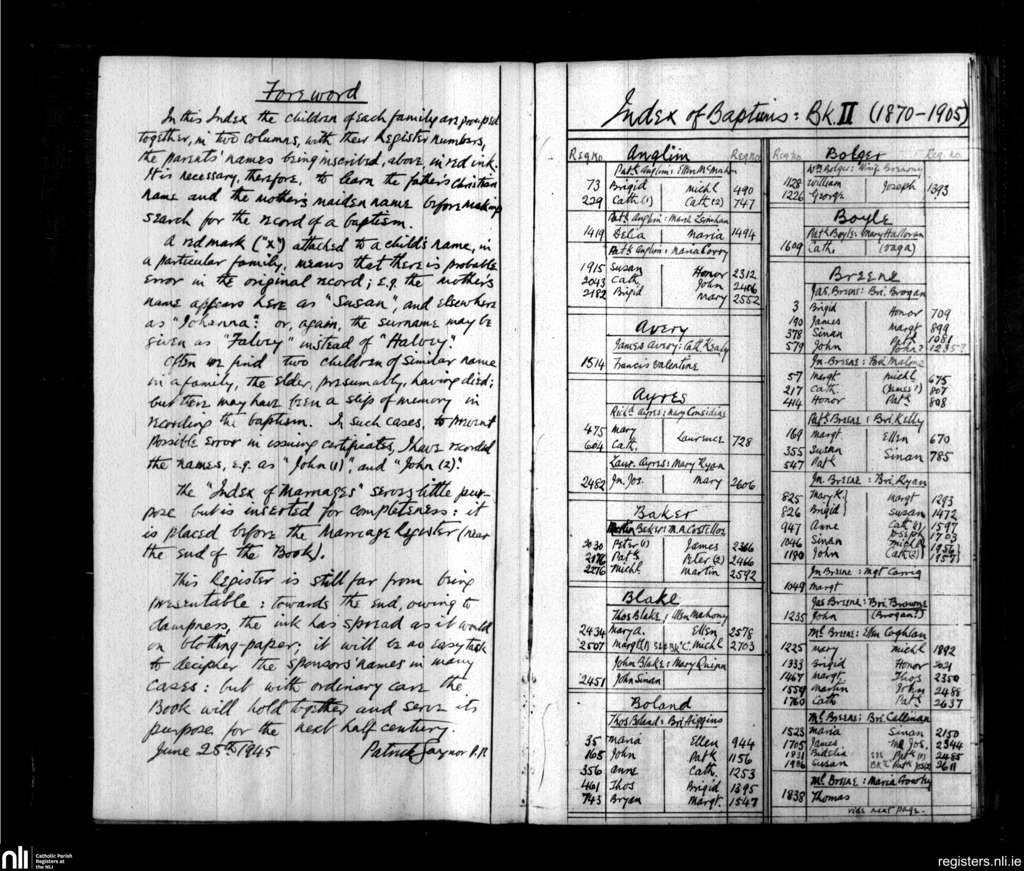 Foreword
In this Index the children of each family are grouped
together, in two columns, with their Register numbers,
the parents' names being inscribed, above in red ink.
It is necessary, therefore, to learn the father's Christian
name and the mother's maiden name before making
search for the record of a baptism.
A red mark ("x") attached to a child's name, in
a particular family, means that there is probable
error in the original record; e.g. the mother's
name appears here as "Susan", and elsewhere
as "Johanna": or, again, the surname may be
given as "Falvey" instead of "Halvey".
Often we find two children of similar name
in a family, the elder, presumably, having died;
but there may have been a slip of memory in
recording the baptism. In such cases, to prevent
possible error in issuing certificates, I have recorded
the names, e.g. as "John (1)", and "John (2)".
The "Index of Marriages" serves little pur-
pose but is inserted for completeness: it
is placed before the Marriage Register (near
the end of the Book).
This Register is still far from being
presentable: towards the end, owing to
dampness, the ink has spread as it would
on blotting-paper; it will be no easy task
to decipher the sponsors' names in many
cases: but with ordinary care the
Book will hold together and serve its
purpose for the next half century.
June 25th 1945 Patrick Gaynor P.P.
Index of Baptisms: Bk. II (1870-1905)
Reg no Anglim Reg no
Patk Anglim: Ellen McMahon
73 Brigid Michl 490
229 Cath (1) Cath (2) 747
Patk Anglim: Maria Lenihan
1419 Delia Maria 1494
Patk Anglim: Maria Corry
1915 Susan Honor 2312
2043 Cath John 2406
2182 Brigid Mary 2552
Avery
James Avery: Cath Kealy
1514 Francis Valentine
Ayres
Richd Ayres: Mary Considine
475 Mary Laurence 728
604 Cath.
Laur. Ayres: Mary Ryan
2482 Jn. Jos. Mary 2606
Baker
Martin Baker: M.A. Costelloe
2030 Peter (1) James 2366
2176 Patk Peter (2) 2466
2276 Michl Martin 2592
Blake
Thos Blake: Ellen Mahony
2434 Mary A. Ellen 2578
2507 Margt Michl 2703
John Blake: Mary Quinn
2451 John Sinan
Boland
Thos Boland: Bri. Higgins
35 Maria Ellen 944
168 John Patk 1156
356 Anne Cath. 1253
461 Thos Brigid 1395
743 Bryan Margt. 1547
Reg no. Bolger Reg. no
Wm Bolger: Winif.
1128 William Joseph 1393
1226 George
Boyle
Patk Boyle: Mary Halloran
1609 Cath. (vaga)
Breene
Jas. Breene: Bri. Brogan
3 Brigid Honor 709
190 James Margt 899
378 Sinan Patk 1081
579 John John?
Jn. Breene: Malone
57 Margt Michl 675
217 Cath. (James?) 807
414 Honor Patk 808
Patk Breene: Bri Kelly
169 Margt Ellen 670
355 Susan Sinan 785
547 Patk
Jn. Breene: Bri. Ryan
825 Mary K. Margt 1293
826 Brigid Susan 1472
947 Anne Cath (1) 1597
1046 Sinan Joseph 1703
1190 John Michl 1956
Cath (2) 1957
Jn Breene: Mgt Carrig
1049 Margt
Jas Breene: Bri Browne
1235 John (Brogan?)
Ml. Breene: Ellen Coghlan
1225 Mary Michl 1892
1333 Brigid Honor 2021
1467 Margt Thos 2350
1559 Martin John 2488
1760 Cath Patk 2637
Ml. Breene: Bri. Callinan
1523 Maria Sinan 2150
1705 James Ml Jos. 2344
1831 Bidelia Patk (1) 2485
1986 Susan Patk 2611
Ml. Breene: Maria Crowley
1838 Thomas
vide next page.
nli Catholic Parish
Registers at
the NLI
registers.nli.ie